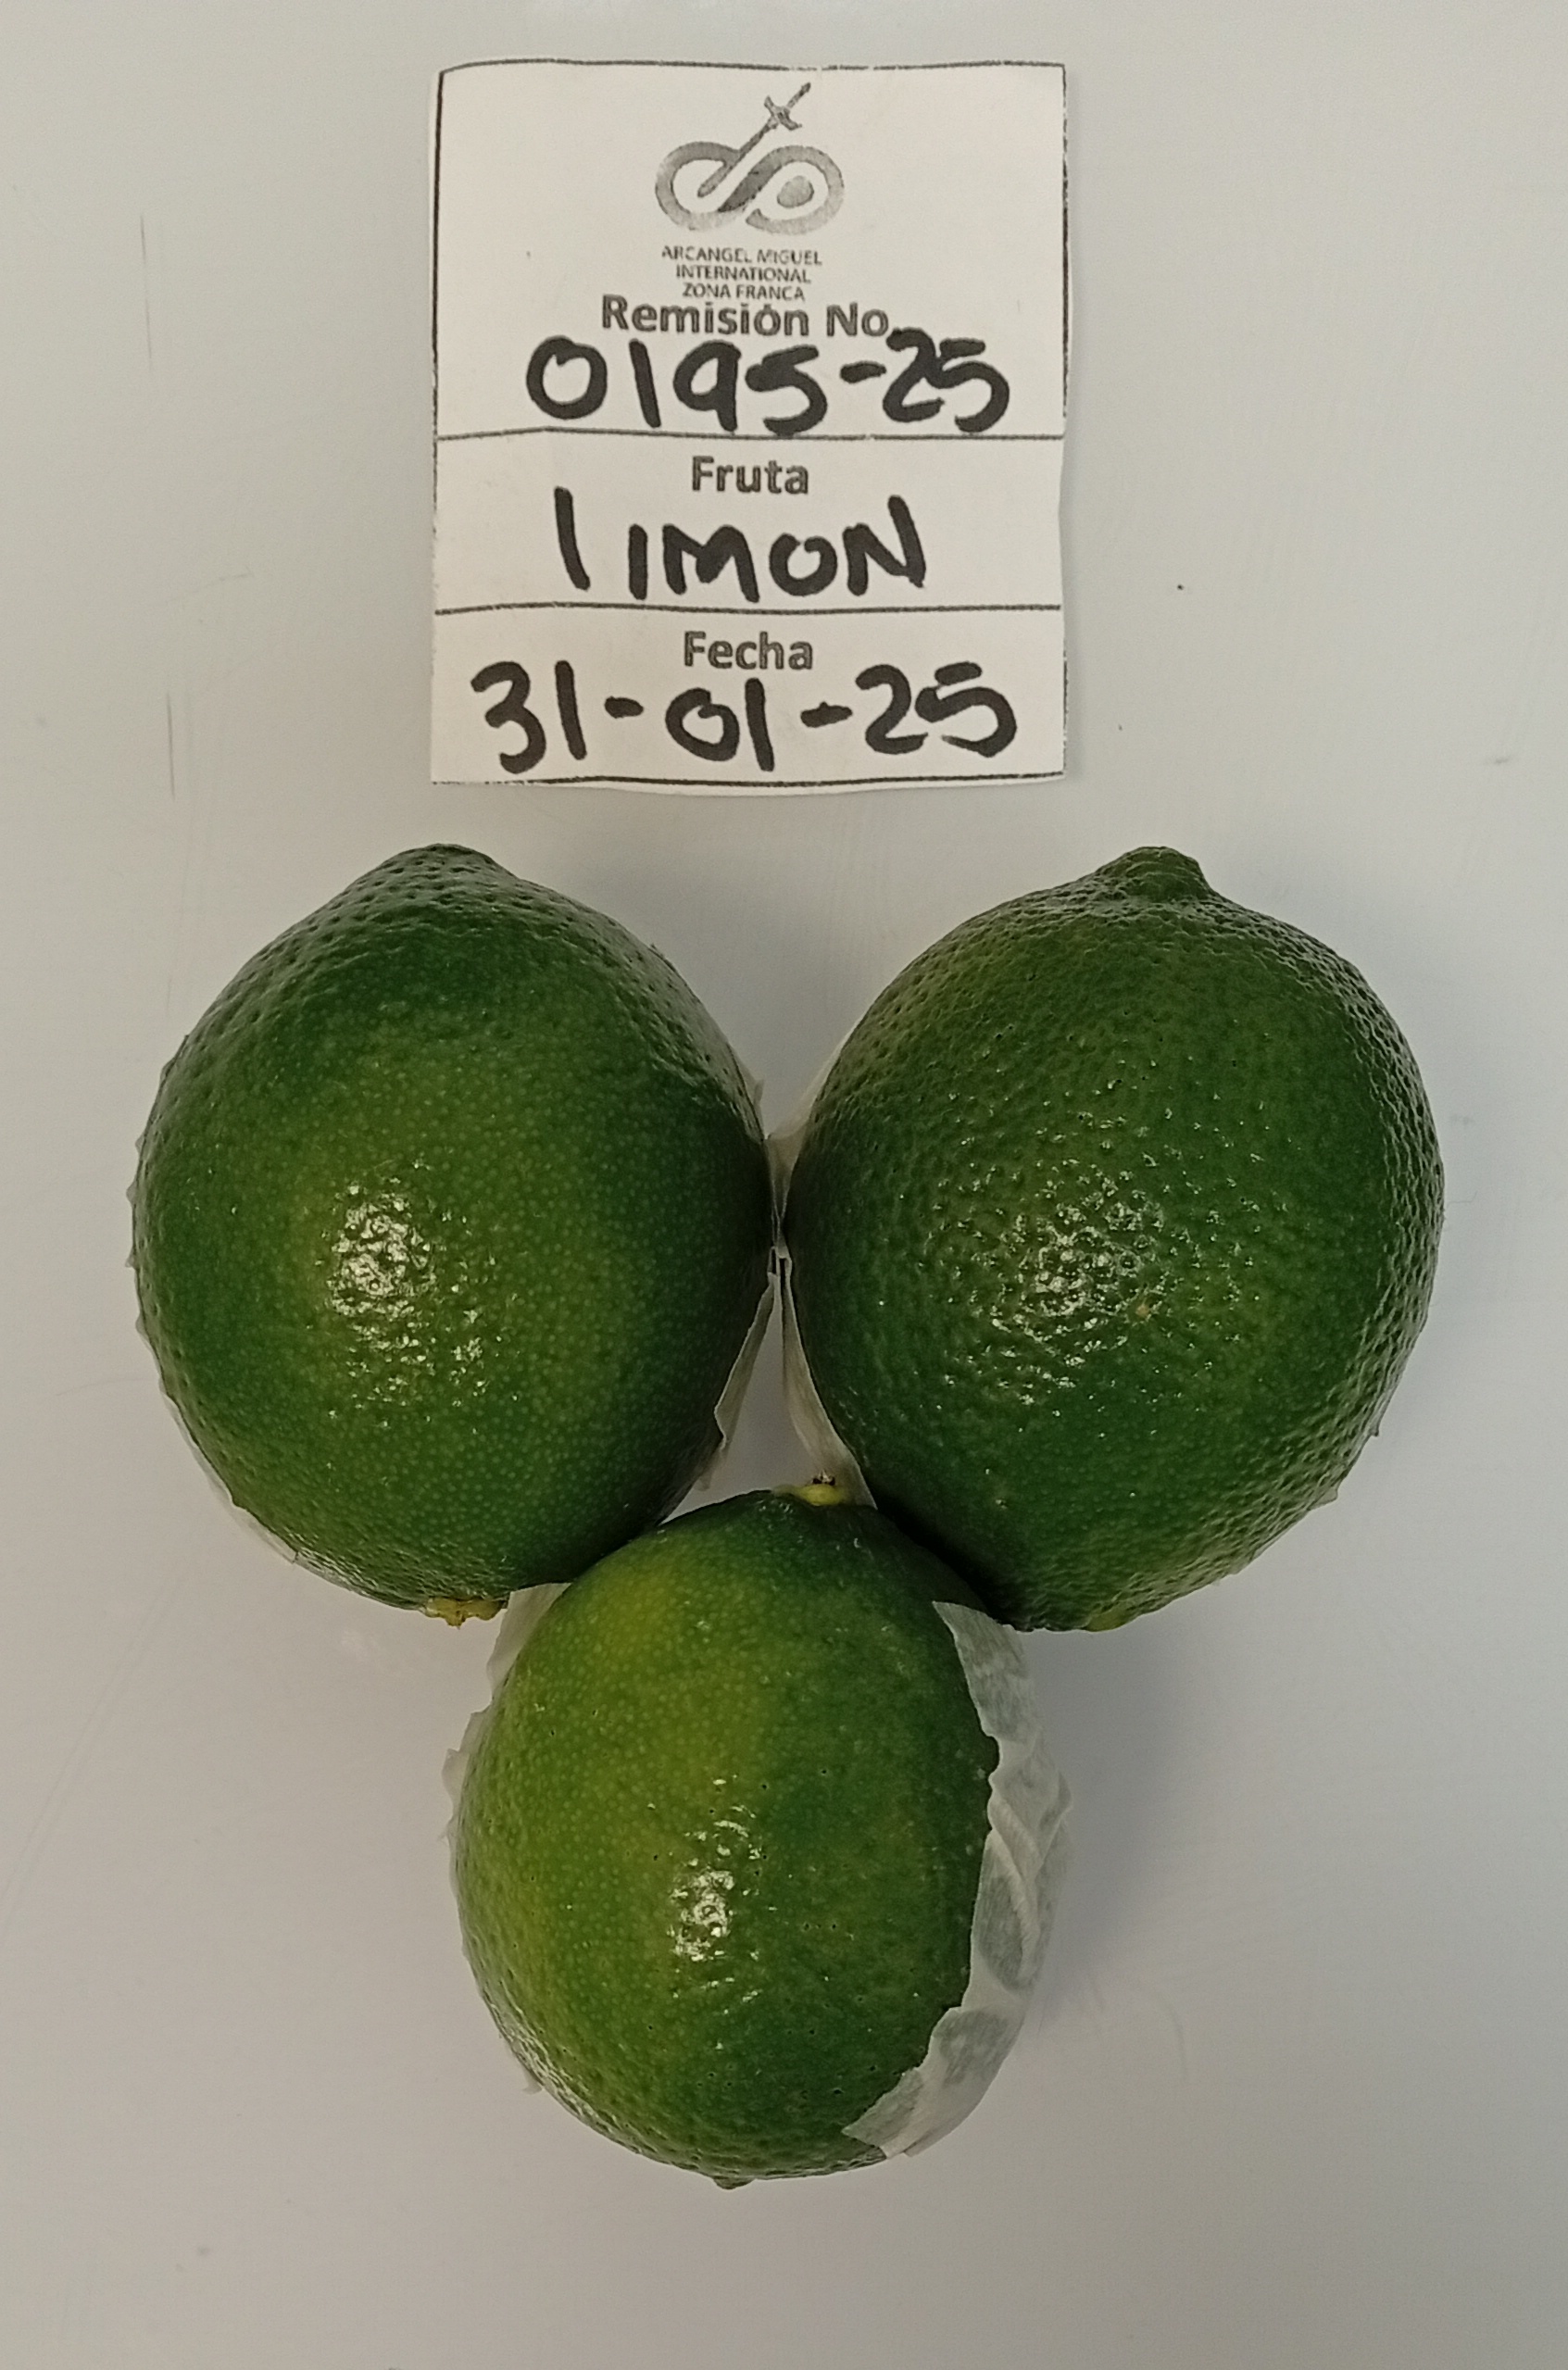 ARCANGEL MIGUEL
INTERNATIONAL
ZONA FRANCA
Remisión No.
0195-25
Fruta
lIMON
Fecha
31-01-25